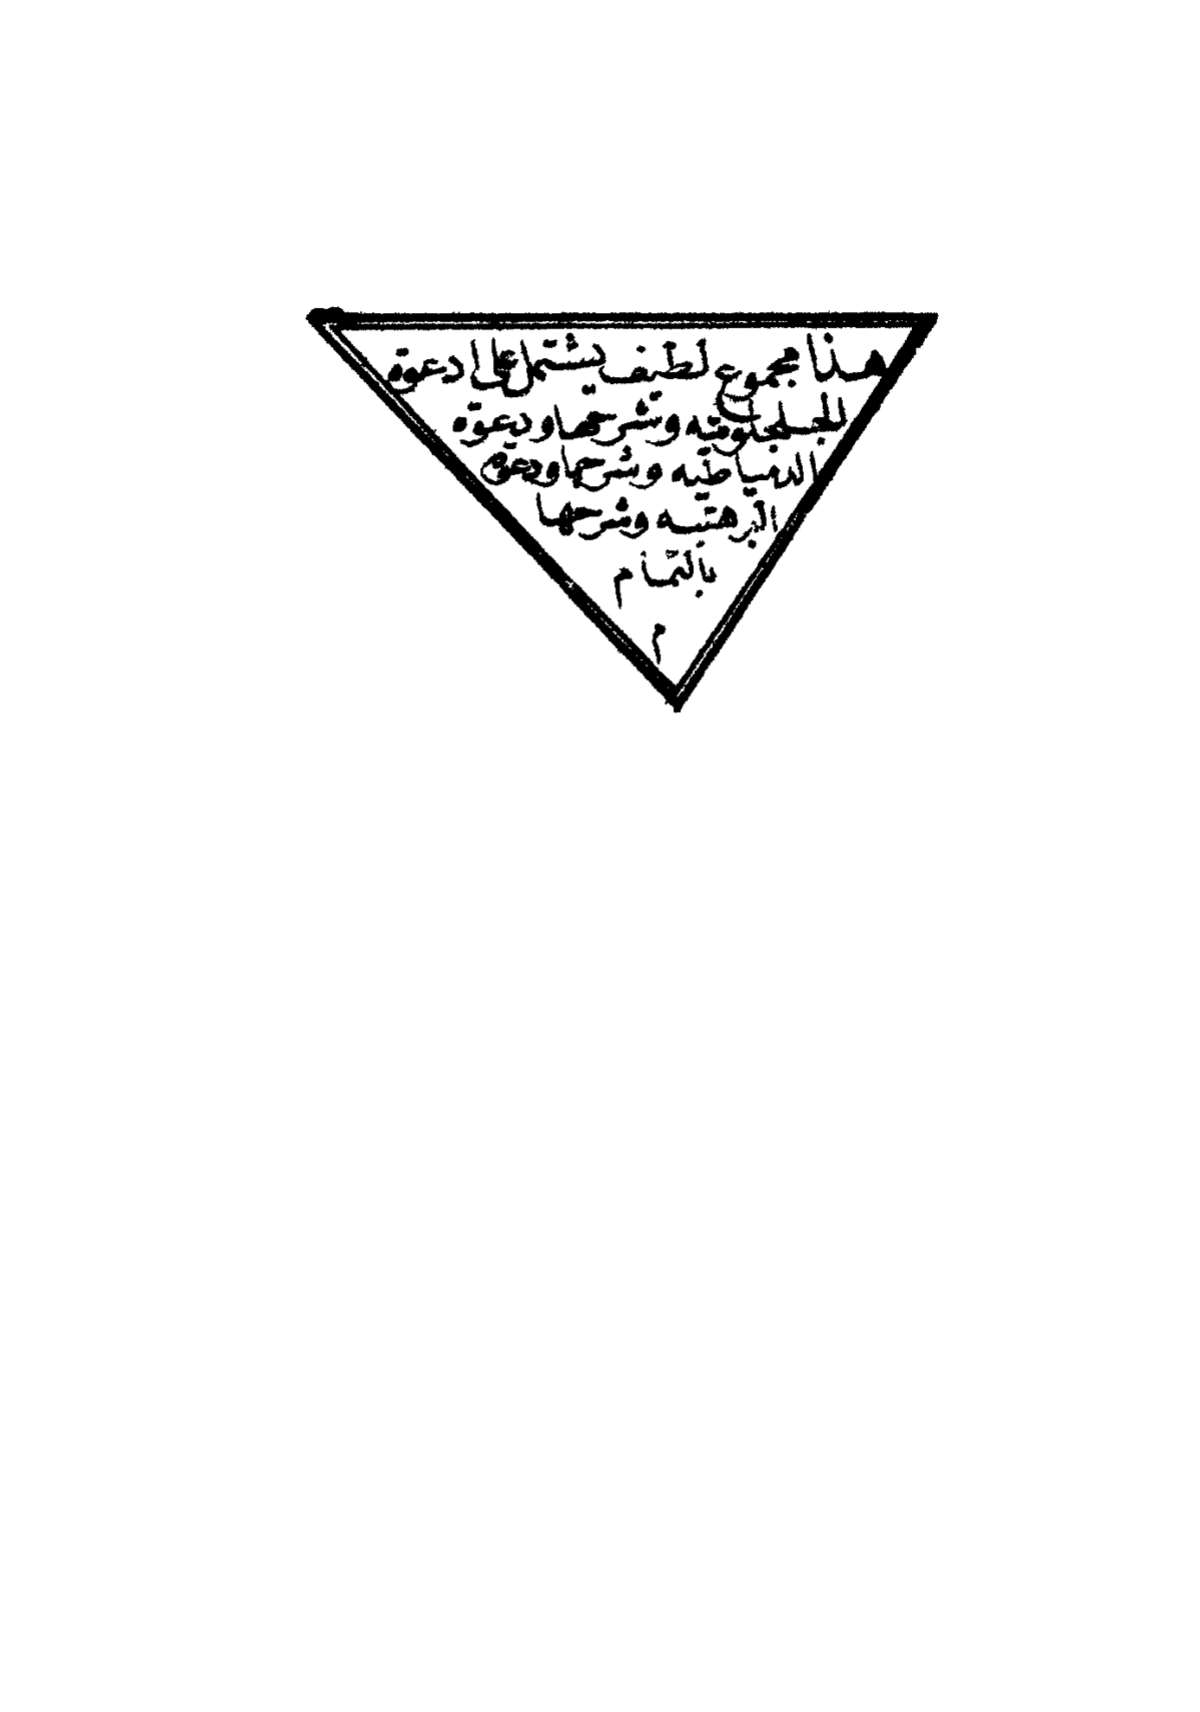 هذا مجموع لطيف يشتمل على دعوة
الجلجلوتيه وشرحها ودعوة
الدمياطيه وشرحها ودعوة
البرهتيه وشرحها
بالتمام
م